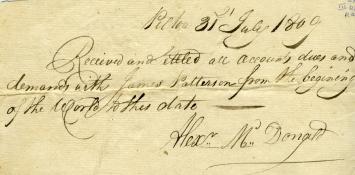 Pictou 31st July 1809
Received and settled all accounts dues and
demands with James Patterson from the begining
of the World to this date
Alexr. McDonald